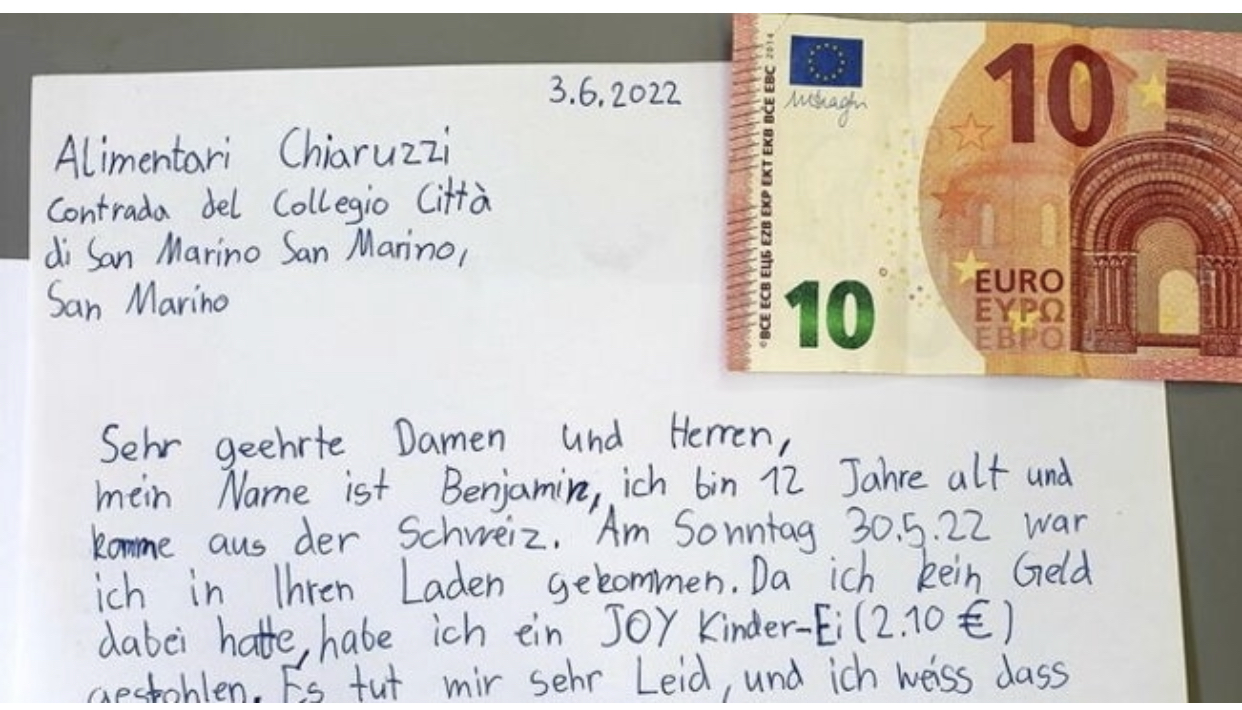 3.6.2022
Alimentari Chiaruzzi
Contrada del Collegio Città
di San Marino San Marino,
San Marino
Sehr geehrte Damen und Herren,
mein Name ist Benjamin, ich bin 12 Jahre alt und
komme aus der Schweiz. Am Sonntag 30.5.22 war
ich in Ihren Laden gekommen. Da ich kein Geld
dabei hatte, habe ich ein JOY Kinder-Ei (2.10 €)
gestohlen. Es tut mir sehr Leid, und ich weiss dass
©BCE ECB ЕЦБ EZB EKP EKT EKB BCE EBC 2014
10
10
EURO
ΕΥΡΩ
ЕВРО